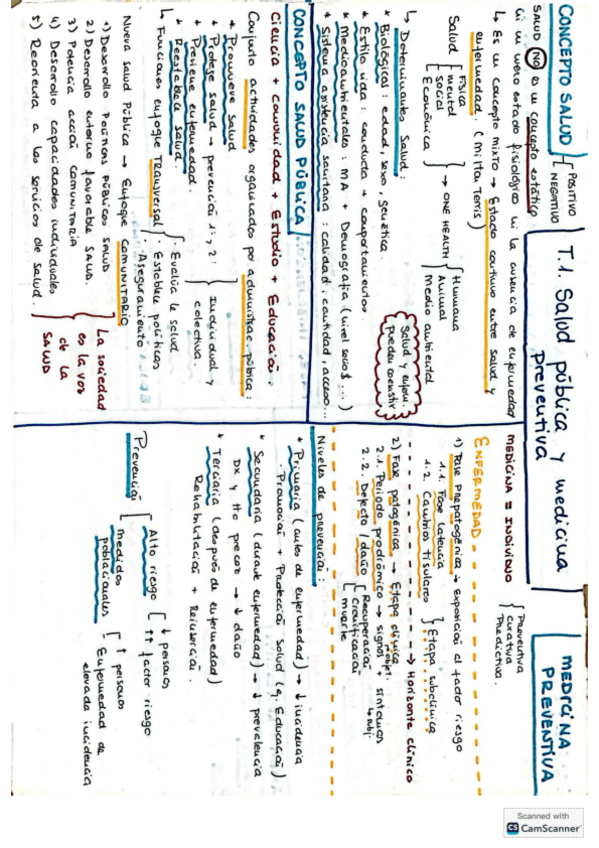 T.1. Salud pública y medicina
preventiva
CONCEPTO SALUD { POSITIVO
NEGATIVO
SALUD NO es un concepto estático
ni un mero estado fisiológico ni la ausencia de enfermedad
↳ Es un concepto mixto → Estado continuo entre salud y
enfermedad. (Milton Terris)
Salud { Física
mental
social
Económica } → ONE HEALTH { Humana
Animal
Medio ambiental
↳ Determinantes Salud:
Salud y enferm.
pueden coexistir
* Biológicos: edad, sexo, genética.
* Estilo vida: conducta + comportamientos.
* Medioambientales: MA + Demografía (nivel socio$...)
* Sistema asistencia sanitaria: calidad, cantidad, acceso...
CONCEPTO SALUD PÚBLICA
Ciencia + comunidad + Estudio + Educación.
Conjunto actividades organizadas por administrac. pública:
* Promueve salud
* Protege salud → prevención 1º, 2º
* Previene enfermedad.
* Reestablece salud.
} Individual y
colectiva.
↳ Funciones enfoque Transversal { · Evalúa la salud.
· Establece políticas
· Aseguramiento
Nueva salud Pública → Enfoque COMUNITARIO
1) Desarrollo Políticas Públicas SALUD
2) Desarrollo entorno favorable SALUD.
3) Potencia acción comunitaria
4) Desarrollo capacidades individuales
5) Reorienta a los servicios de salud.
} La sociedad
es la voz
de la
SALUD
MEDICINA
PREVENTIVA
MEDICINA = INDIVIDUO { Preventiva
Curativa
Predictiva.
ENFERMEDAD
1) Fase Prepatogénica → Exposición al factor riesgo
1.1. Fase latencia
1.2. Cambios tisulares } Etapa subclínica
→ Horizonte clínico
2) Fase patogénica → Etapa clínica
2.1. Periodo prodrómico → signos + síntomas
objet. subj.
2.2. Defecto / daño { Recuperación
Cronificación
muerte
Niveles de prevención:
* Primaria (antes de enfermedad) → ↓ incidencia
· Promoción + Protección salud (ej. Educación)
* Secundaria (durante enfermedad) → ↓ prevalencia
Dx y tto precoz → ↓ daño
* Terciaria (después de enfermedad)
Rehabilitación + Reinserción.
Prevención { Alto riesgo [ ↓ personas
↑↑ factor riesgo
medidas
poblacionales [ ↑ personas
Enfermedad de
elevada incidencia
Scanned with
CS CamScanner